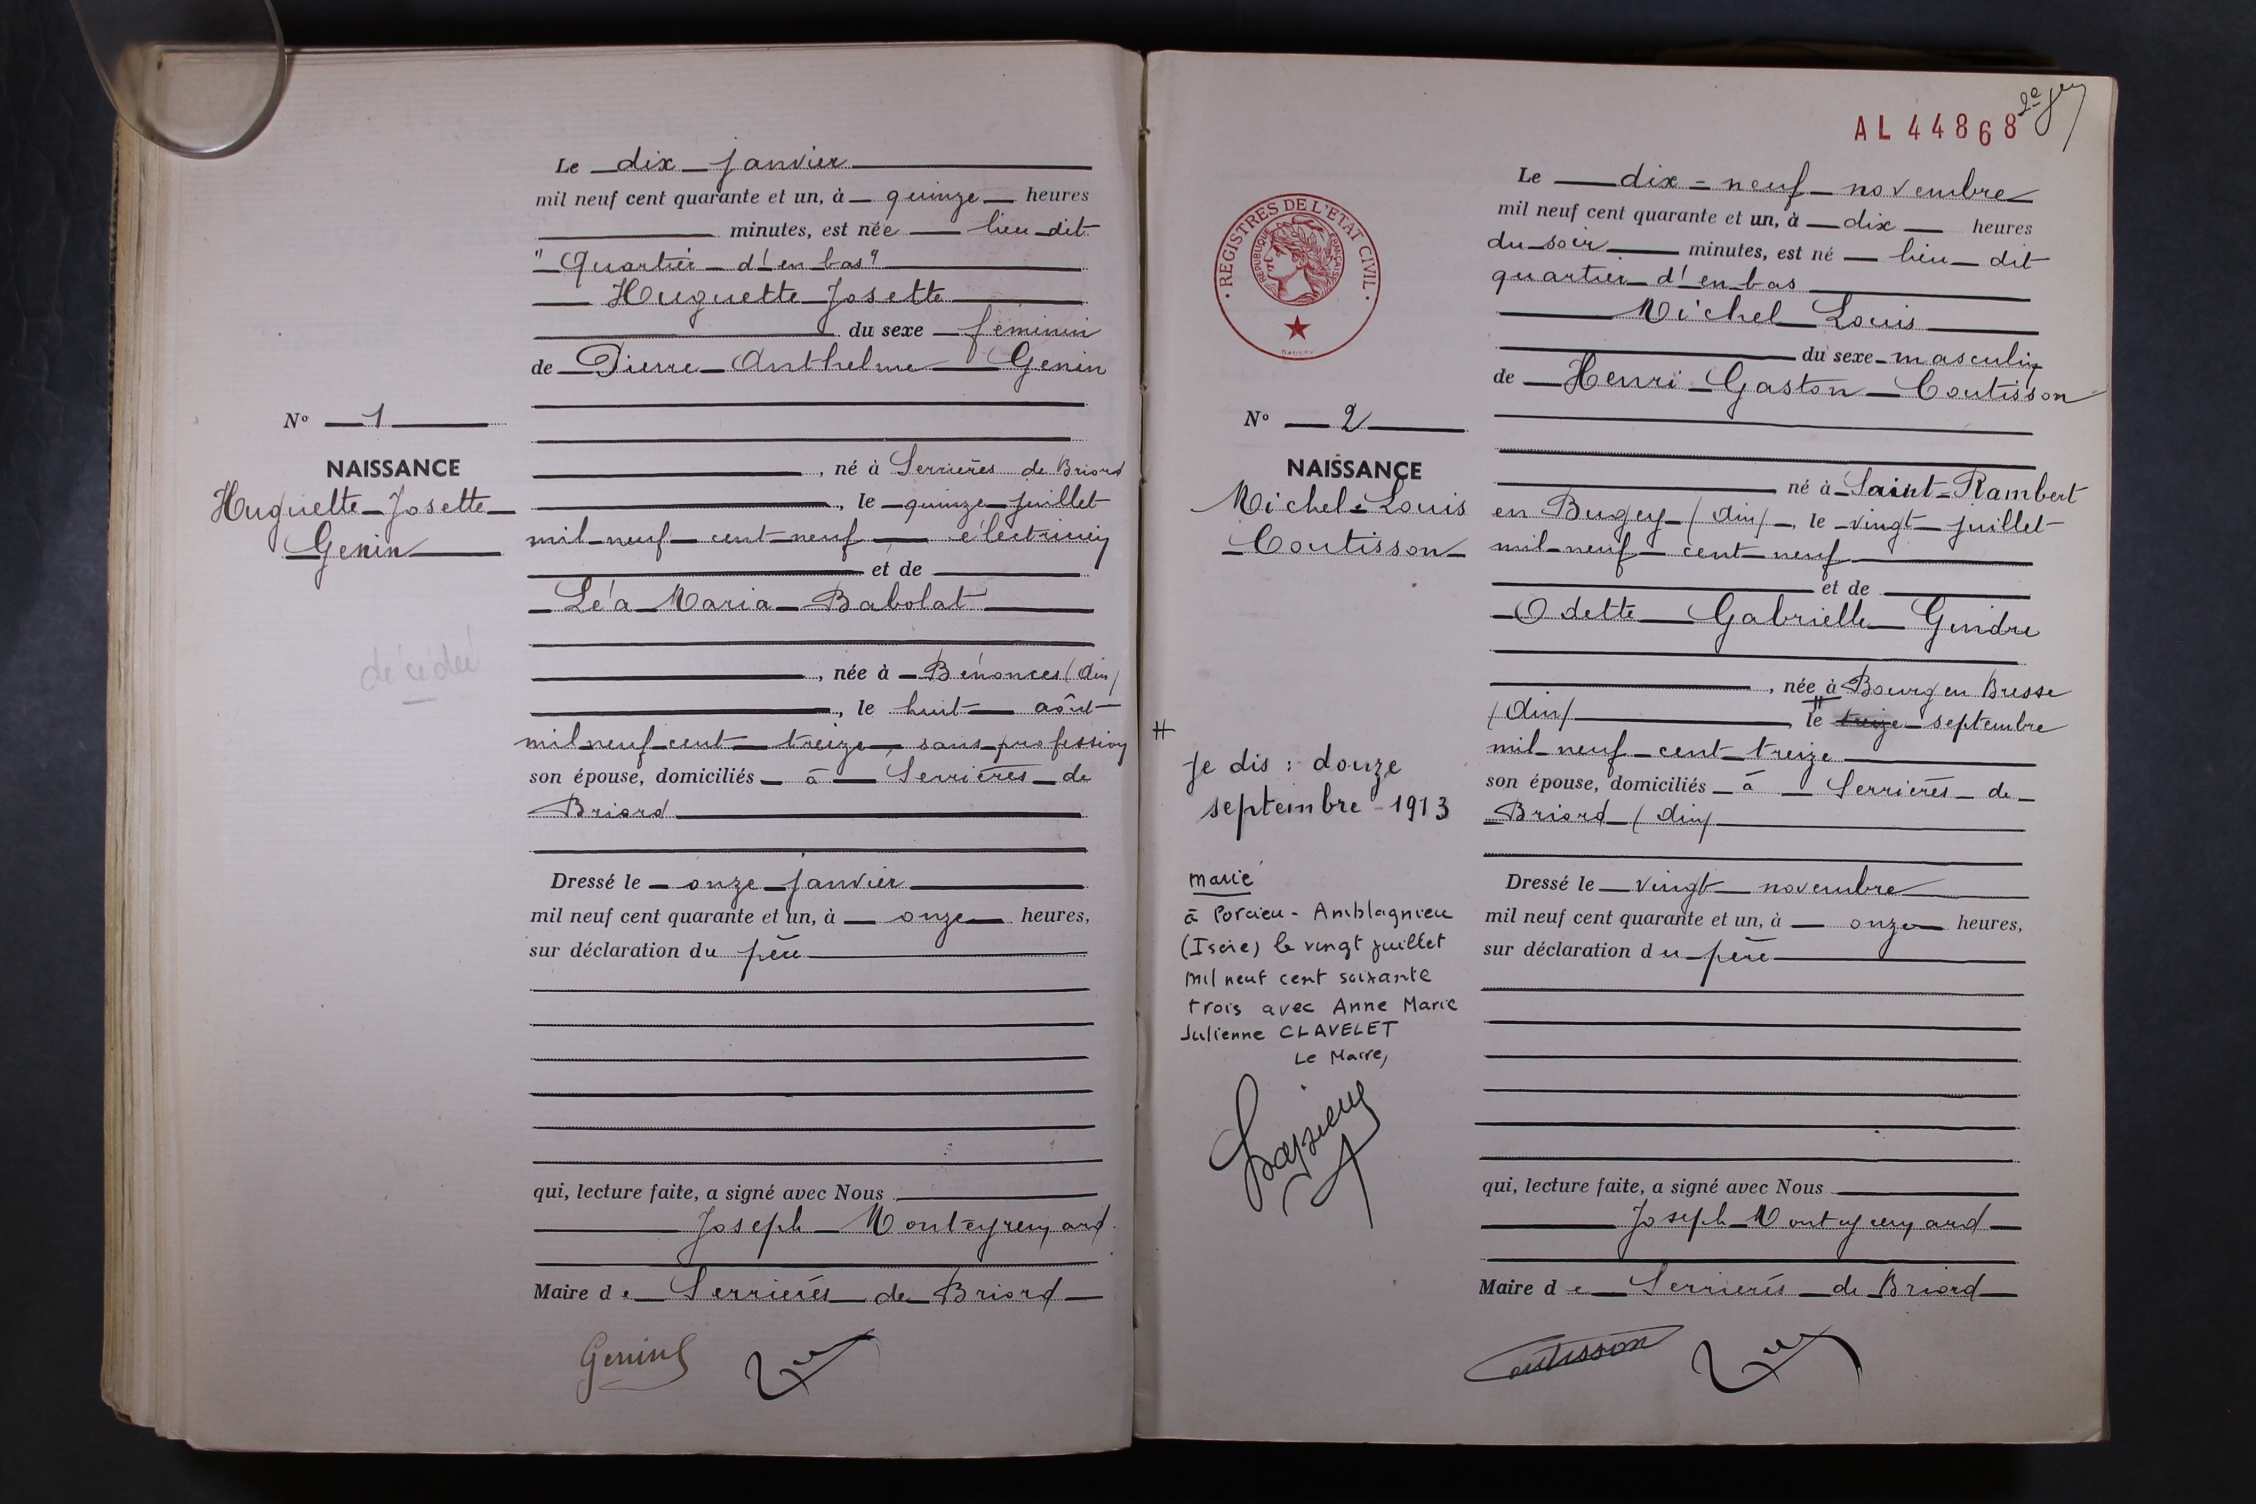 Le dix janvier
mil neuf cent quarante et un, à quinze heures
minutes, est née lieu dit
"Quartier d'en bas"
Huguette Josette
du sexe féminin
de Pierre Anthelme Genin
N° 1
NAISSANCE
Huguette Josette
Genin
décédée
, né à Serrières de Briord
, le quinze juillet
mil neuf cent neuf électricien
et de
Léa Maria Babolat
, née à Bénonces (Ain)
, le huit août
mil neuf cent treize, sans profession
son épouse, domiciliés à Serrières de
Briord
Dressé le onze janvier
mil neuf cent quarante et un, à onze heures,
sur déclaration du père
qui, lecture faite, a signé avec Nous
Joseph Monteyremard
Maire de Serrières de Briord
Genin
AL 44868
REGISTRES DE L'ETAT CIVIL
REPUBLIQUE FRANÇAISE
Le dix-neuf novembre
mil neuf cent quarante et un, à dix heures
du soir minutes, est né lieu dit
quartier d'en bas
Michel Louis
du sexe masculin
de Henri Gaston Coutisson
N° 2
NAISSANCE
Michel Louis
Coutisson
né à Saint-Rambert
en Bugey (Ain), le vingt juillet
mil neuf cent neuf
et de
Odette Gabrielle Gindre
, née à Bourg en Bresse
(Ain) # le treize septembre
mil neuf cent treize
son épouse, domiciliés à Serrières de
Briord (Ain)
# Je dis : douze
septembre 1913
marié
à Porcieu-Amblagnieu
(Isère) le vingt juillet
mil neuf cent soixante
trois avec Anne Marie
Julienne CLAVELET
Le Maire,
Dressé le vingt novembre
mil neuf cent quarante et un, à onze heures,
sur déclaration du père
qui, lecture faite, a signé avec Nous
Joseph Monteyremard
Maire de Serrières de Briord
Coutisson